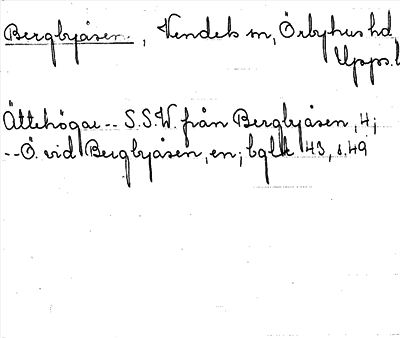 Bergbyåsen. , Vendels sn, Örbyhus hd,
Upps. l
Ättehögar -- S.S.W. från Bergbyåsen, 4;
-- Ö. vid Bergbyåsen, en; bglk 43, s. 49